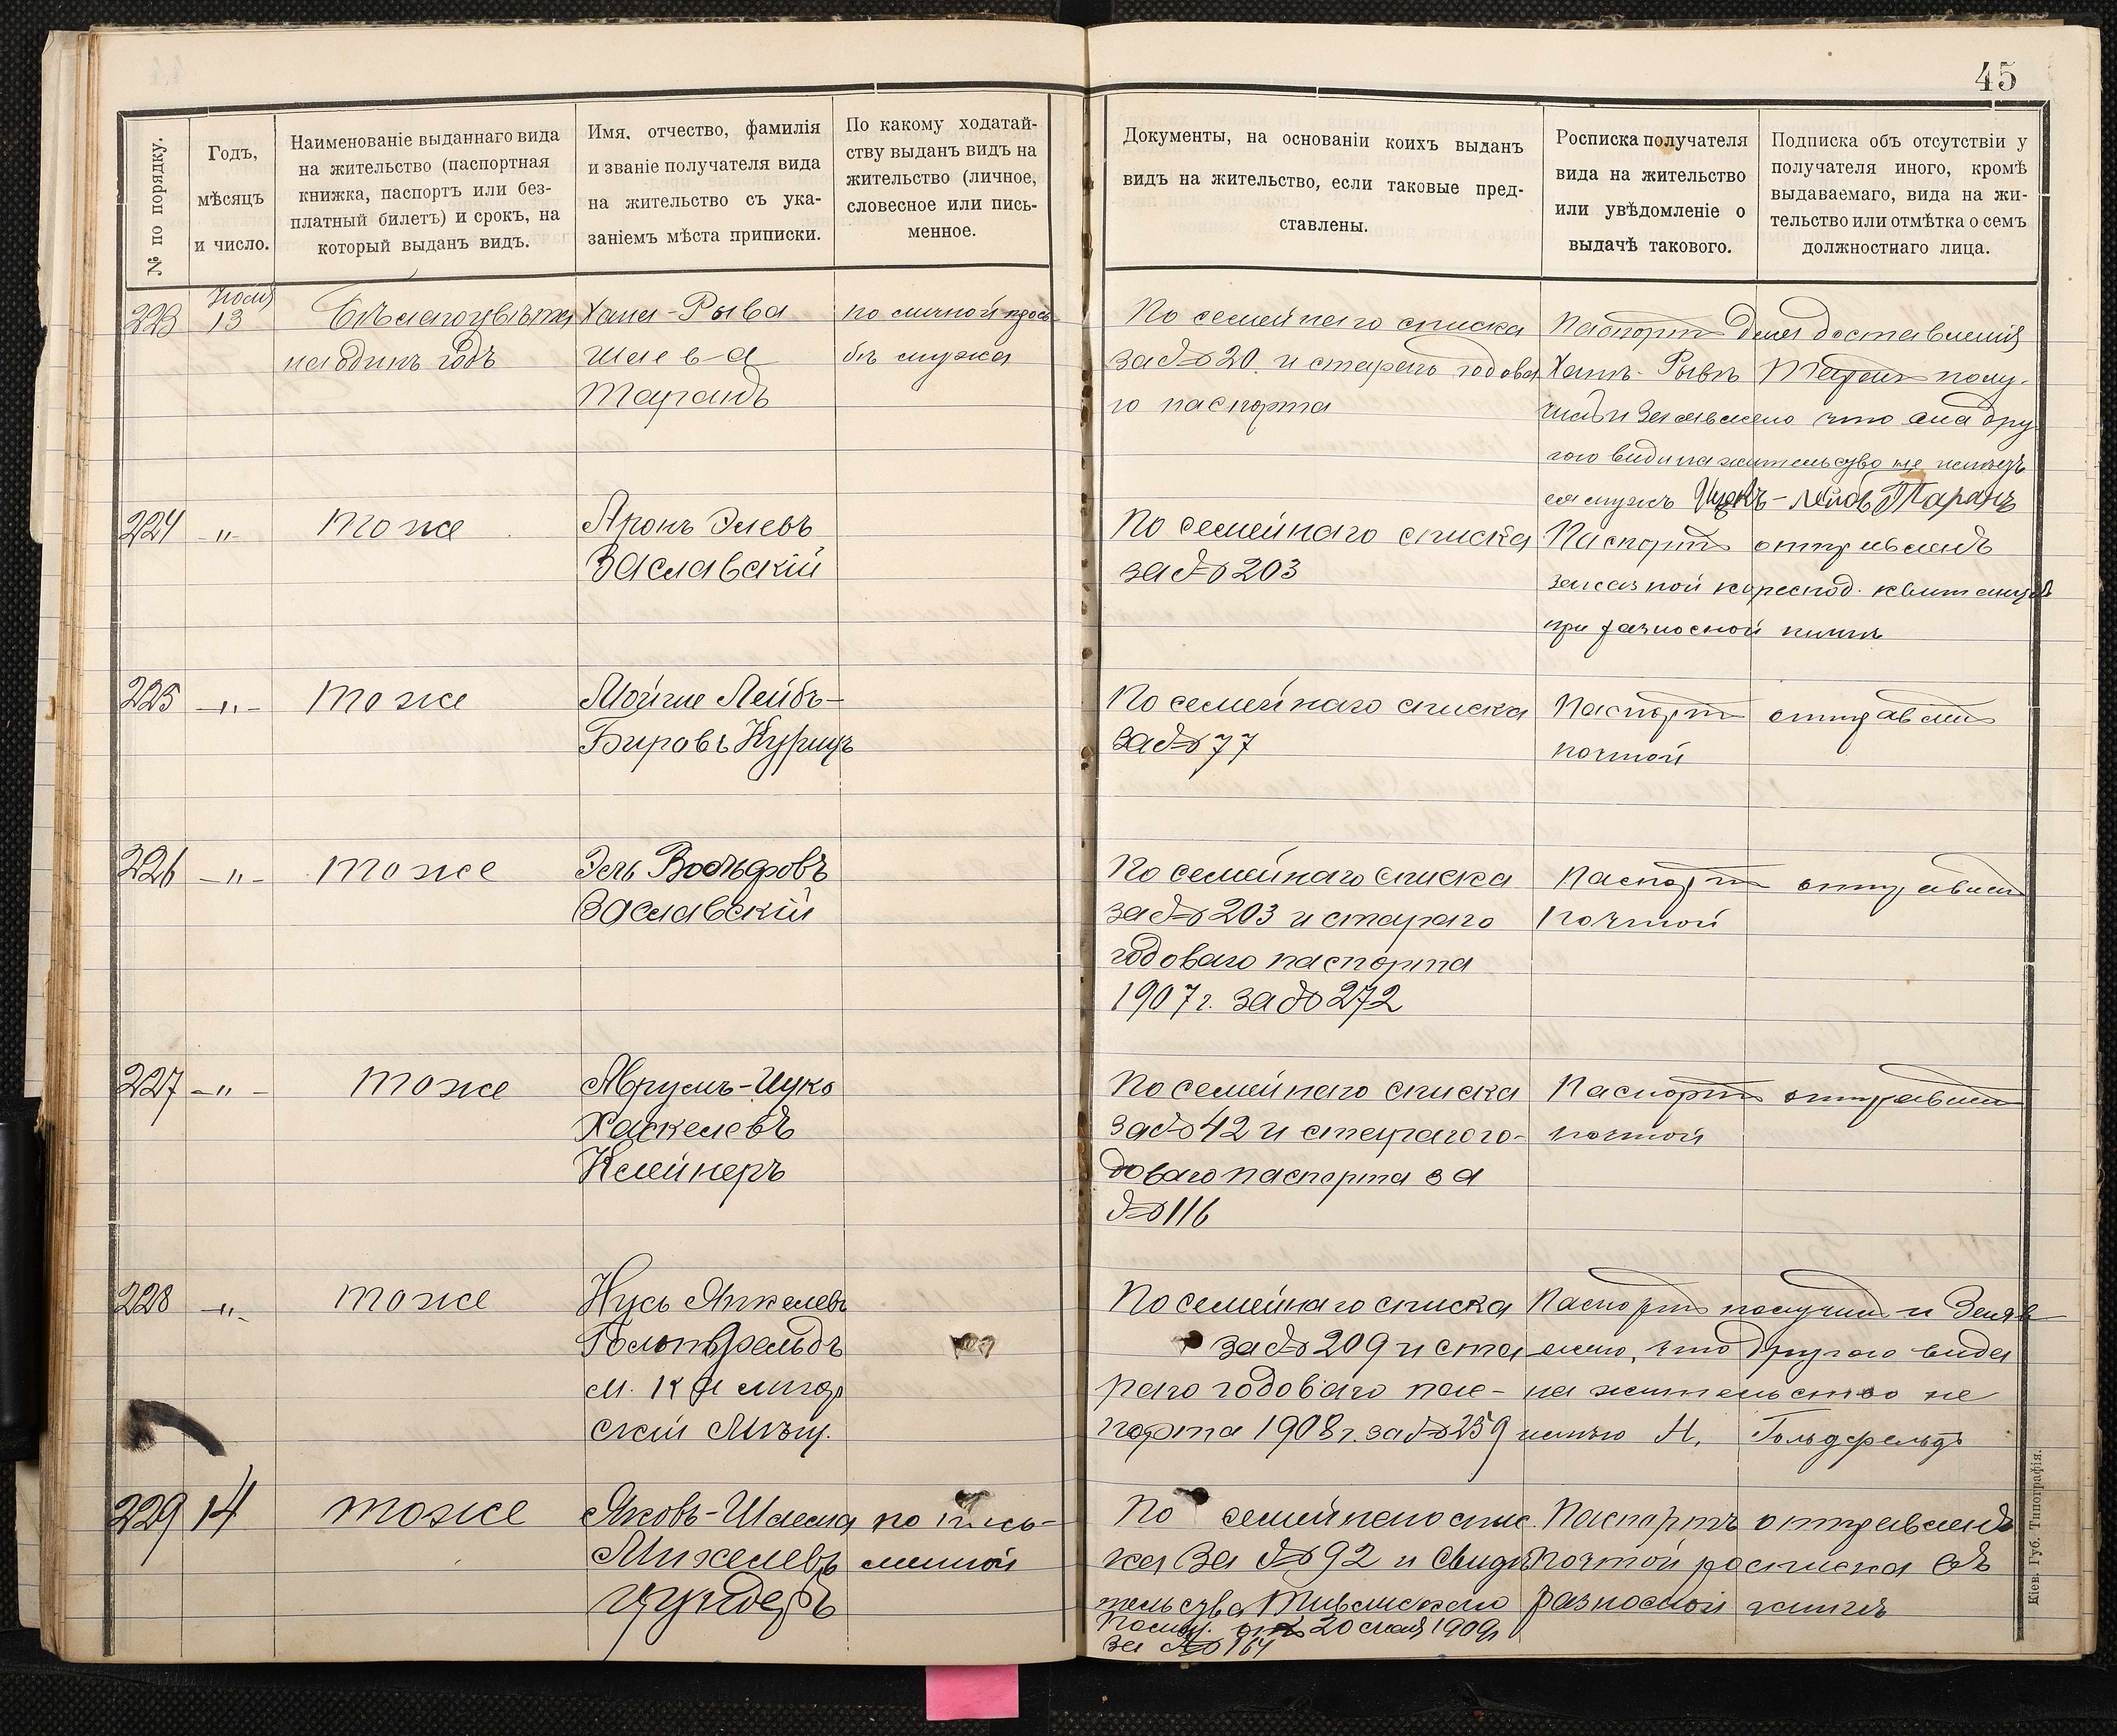 45
№ по порядку.
Годъ,
мѣсяцъ
и число.
Наименованіе выданнаго вида
на жительство (паспортная
книжка, паспортъ или без-
платный билетъ) и срокъ, на
который выданъ видъ.
Имя, отчество, фамилія
и званіе получателя вида
на жительство съ ука-
заніемъ мѣста приписки.
По какому ходатай-
ству выданъ видъ на
жительство (личное,
словесное или пись-
менное.
Документы, на основаніи коихъ выданъ
видъ на жительство, если таковые пред-
ставлены.
Росписка получателя
вида на жительство
или увѣдомленіе о
выдачѣ такового.
Подписка объ отсутствіи у
получателя иного, кромѣ
выдаваемаго, вида на жи-
тельство или отмѣтка о семъ
должностнаго лица.
223
13
на одинъ годъ
Хана-Рыва
Шаева
Таранъ
по личной прось
бѣ мужа
По семейнаго списка
за № 20 и стараго годова
го паспорта
Паспортъ для доставленія
Ханѣ-Рывѣ Таранъ полу-
чилъ и заявлено что она дру
гого вида на жительство не имѣетъ
ея мужъ Таранъ
224 -"-
тоже
Аронъ Элевъ
Заславскій
По семейнаго списка
за № 203
Паспортъ отправленъ
заказной кореспод. квитанція
при разносной книгѣ
225 -"-
тоже
Мойше Лейбъ-
Бировъ Курицъ
По семейнаго списка
за № 77
Паспортъ отправленъ
почтой
226 -"-
тоже
Эль Вольфовъ
Заславскій
По семейнаго списка
за № 203 и стараго
годоваго паспорта
1907 г. за № 272
Паспортъ отправленъ
почтой
227 -"-
тоже
Аврумъ-Ицко
Хаскелевъ
Клейнеръ
По семейнаго списка
за № 42 и стараго го-
доваго паспорта за
№ 116
Паспортъ отправленъ
почтой
228 -"-
тоже
Нусь Янкелевъ
Гольтфельдъ
скій Мѣщ.
По семейнаго списка
за № 209 и ста
раго годоваго пас-
порта 1908 г. за № 259
Паспортъ получилъ и Заяв
лено, что другого вида
на жительство не
имѣю Н. Гольдфельдъ
229 14
тоже
Яковъ-Шлема
Янкелевъ
Цундеръ
по пись-
менной
По семейнаго спис
ка за № 92 и Свидѣ
тельства
Полиц. отъ 20 мая 1909 г
за № 164
Паспортъ отправленъ
почтой росписка въ
разносной книгѣ
Кіев. Губ. Типографія.